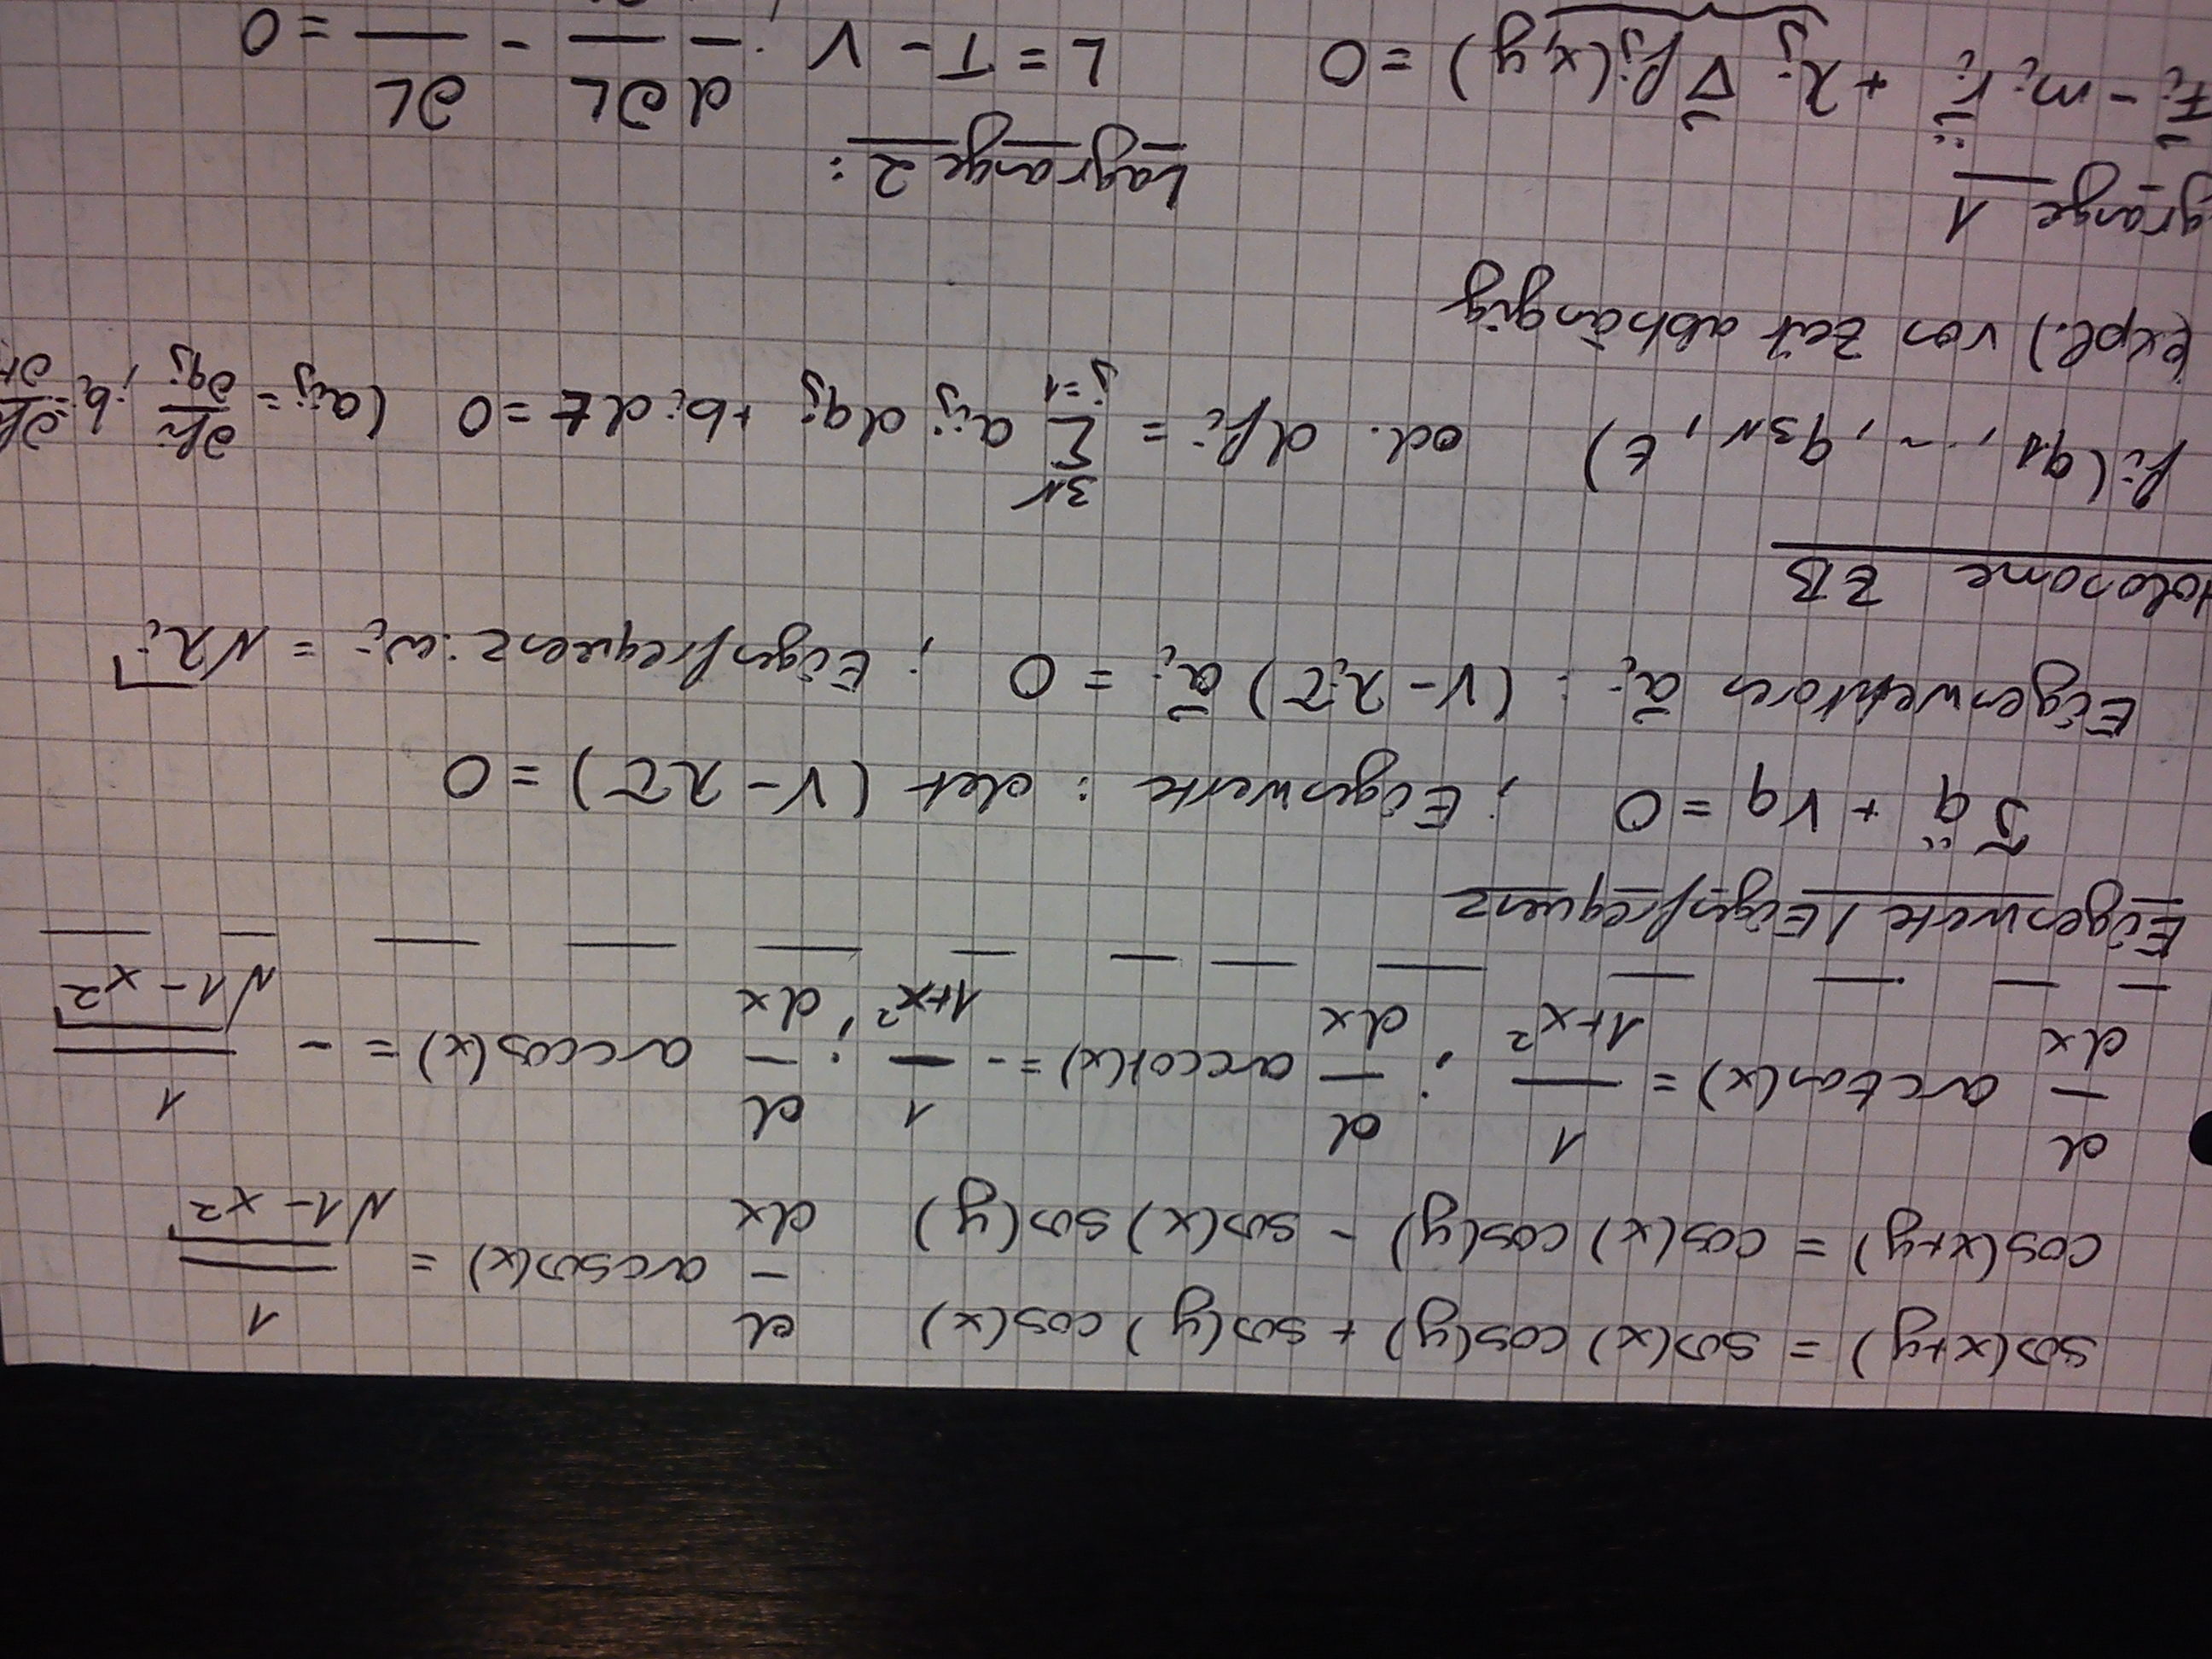 sin(x+y) = sin(x) cos(y) + sin(y) cos(x) d/dx arcsin(x) = 1/√(1-x²)
cos(x+y) = cos(x) cos(y) - sin(x) sin(y)
d/dx arctan(x) = 1/(1+x²) ; d/dx arccot(x) = - 1/(1+x²) ; d/dx arccos(x) = - 1/√(1-x²)
Eigenwerte / Eigenfrequenz
T q̈ + Vq = 0 ; Eigenwerte : det (V - λT) = 0
Eigenvektoren a⃗ᵢ : (V - λᵢT) a⃗ᵢ = 0 ; Eigenfrequenz: ωᵢ = √λᵢ
Holonome ZB
fᵢ(q₁, ..., q₃N, t) od. dfᵢ = Σ_{j=1}^{3N} aᵢⱼ dqⱼ + bᵢ dt = 0 (aᵢⱼ = ∂fᵢ/∂qⱼ ; bᵢ = ∂fᵢ/∂t
(expl.) von Zeit abhängig
grange 1 Lagrange 2:
F⃗ᵢ - mᵢ r⃗̈ᵢ + λⱼ ∇⃗ fⱼ(x,y) = 0 L = T - V ; d ∂L - ∂L = 0